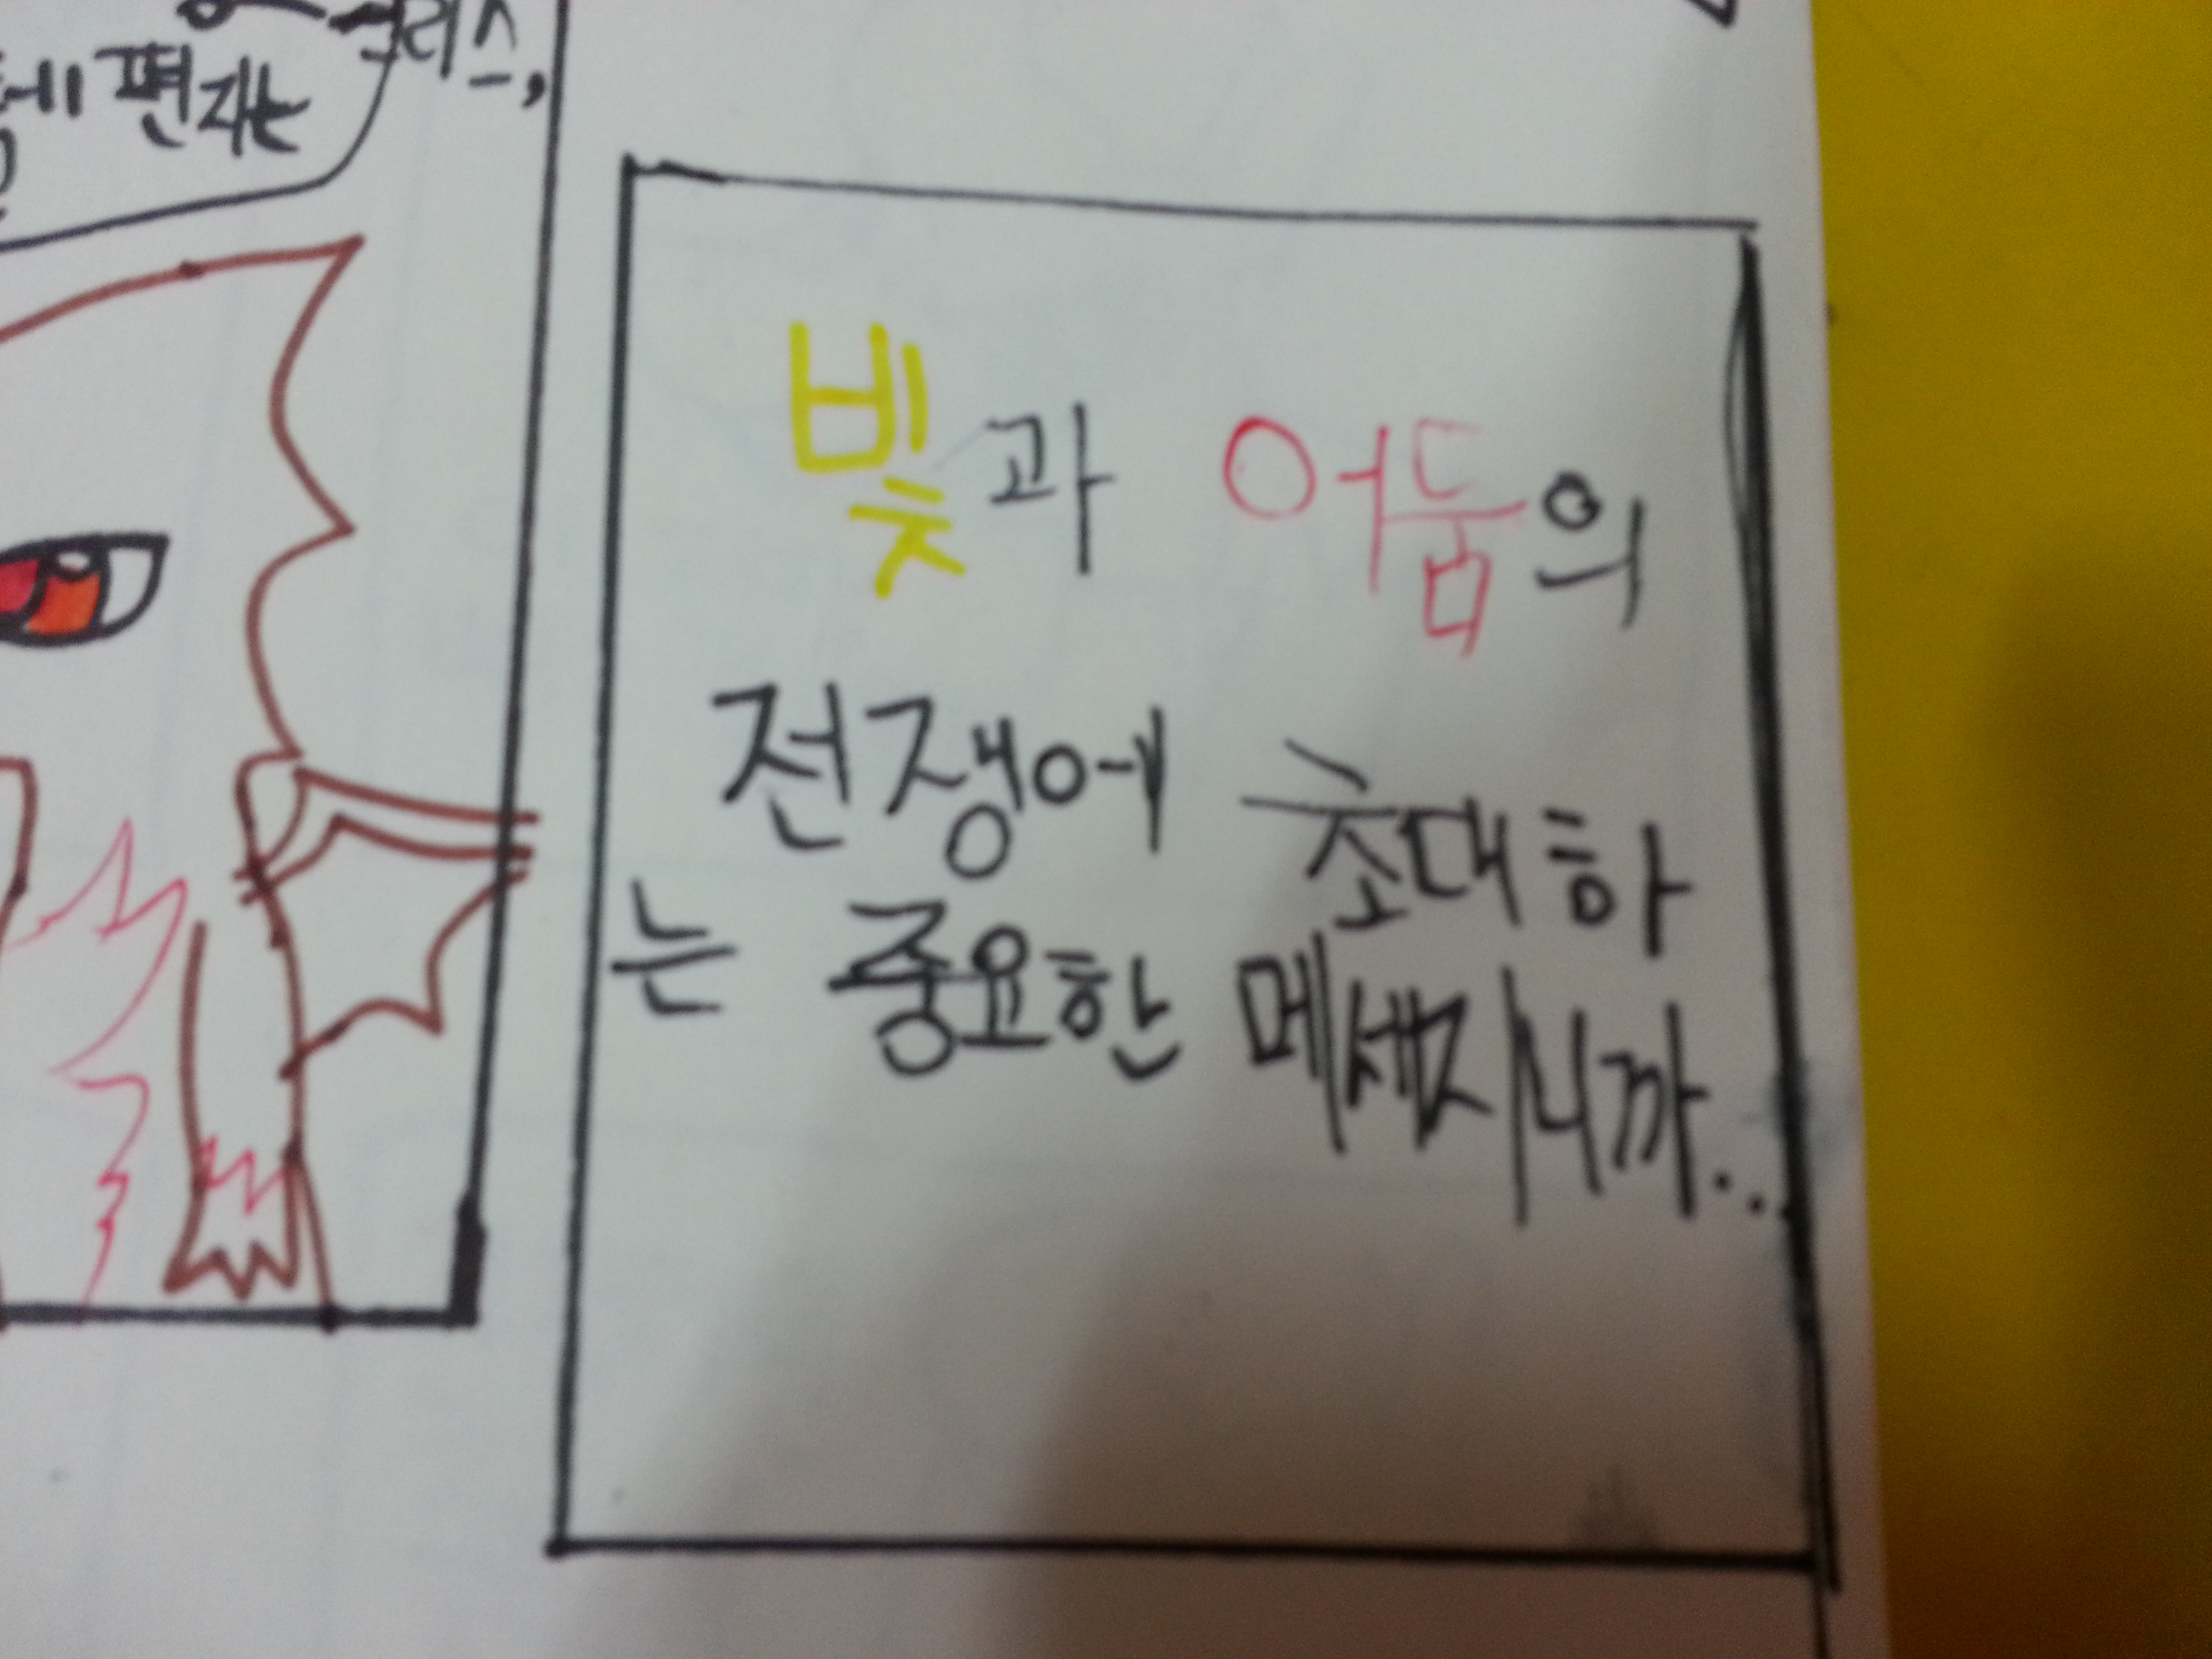 편지는
빛과 어둠의
전쟁에 초대하
는 중요한 메세지니까...